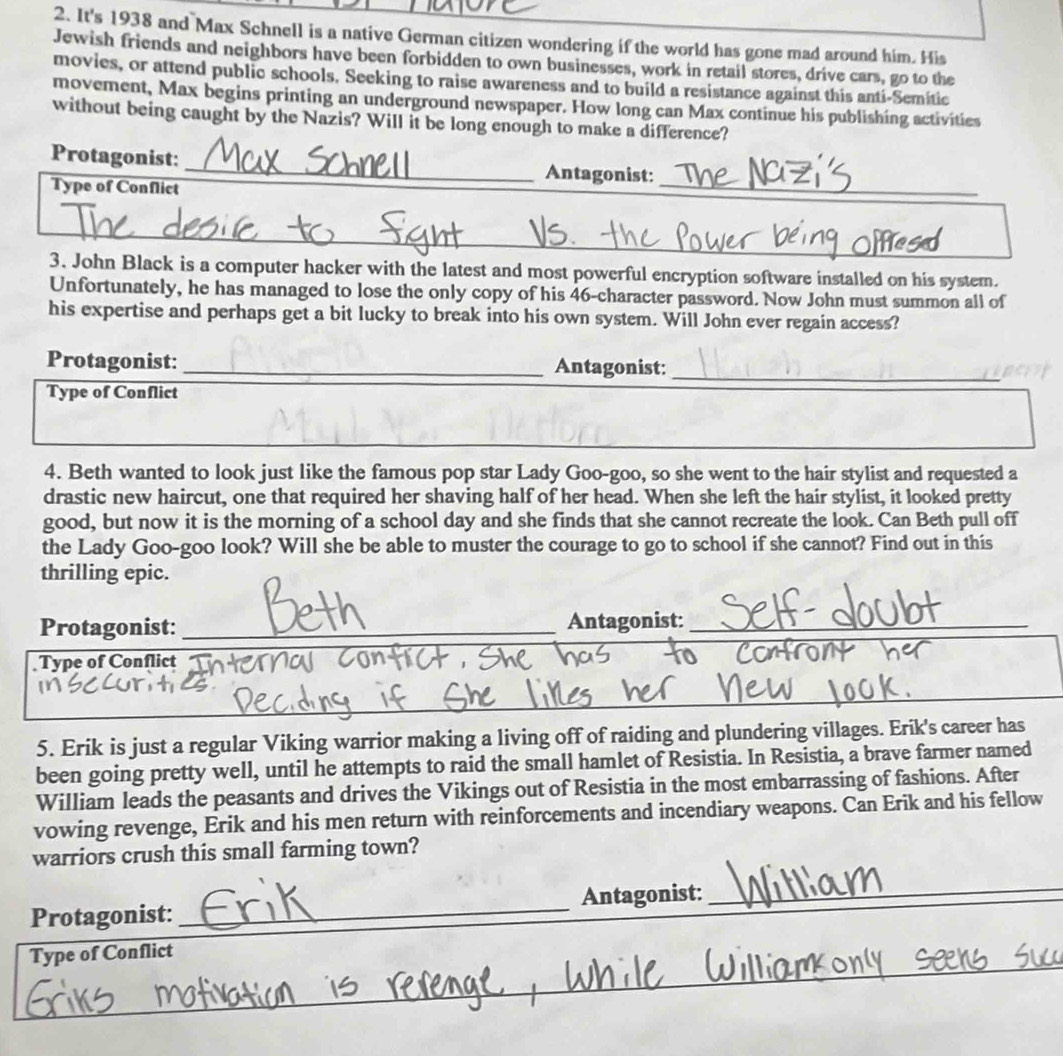 nature
2. It's 1938 and Max Schnell is a native German citizen wondering if the world has gone mad around him. His
Jewish friends and neighbors have been forbidden to own businesses, work in retail stores, drive cars, go to the
movies, or attend public schools. Seeking to raise awareness and to build a resistance against this anti-Semitic
movement, Max begins printing an underground newspaper. How long can Max continue his publishing activities
without being caught by the Nazis? Will it be long enough to make a difference?
Protagonist: Max Schnell Antagonist: The Nazi's
Type of Conflict
The desire to fight Vs. the Power being oppresed
3. John Black is a computer hacker with the latest and most powerful encryption software installed on his system.
Unfortunately, he has managed to lose the only copy of his 46-character password. Now John must summon all of
his expertise and perhaps get a bit lucky to break into his own system. Will John ever regain access?
Protagonist: Antagonist:
Type of Conflict
4. Beth wanted to look just like the famous pop star Lady Goo-goo, so she went to the hair stylist and requested a
drastic new haircut, one that required her shaving half of her head. When she left the hair stylist, it looked pretty
good, but now it is the morning of a school day and she finds that she cannot recreate the look. Can Beth pull off
the Lady Goo-goo look? Will she be able to muster the courage to go to school if she cannot? Find out in this
thrilling epic.
Protagonist: Beth Antagonist: Self-doubt
Type of Conflict Internal Confict, She has to confront her
insecurities.
Deciding if She likes her new look.
5. Erik is just a regular Viking warrior making a living off of raiding and plundering villages. Erik's career has
been going pretty well, until he attempts to raid the small hamlet of Resistia. In Resistia, a brave farmer named
William leads the peasants and drives the Vikings out of Resistia in the most embarrassing of fashions. After
vowing revenge, Erik and his men return with reinforcements and incendiary weapons. Can Erik and his fellow
warriors crush this small farming town?
Protagonist: Erik Antagonist: William
Type of Conflict
Eriks motivation is revenge, while William only seens